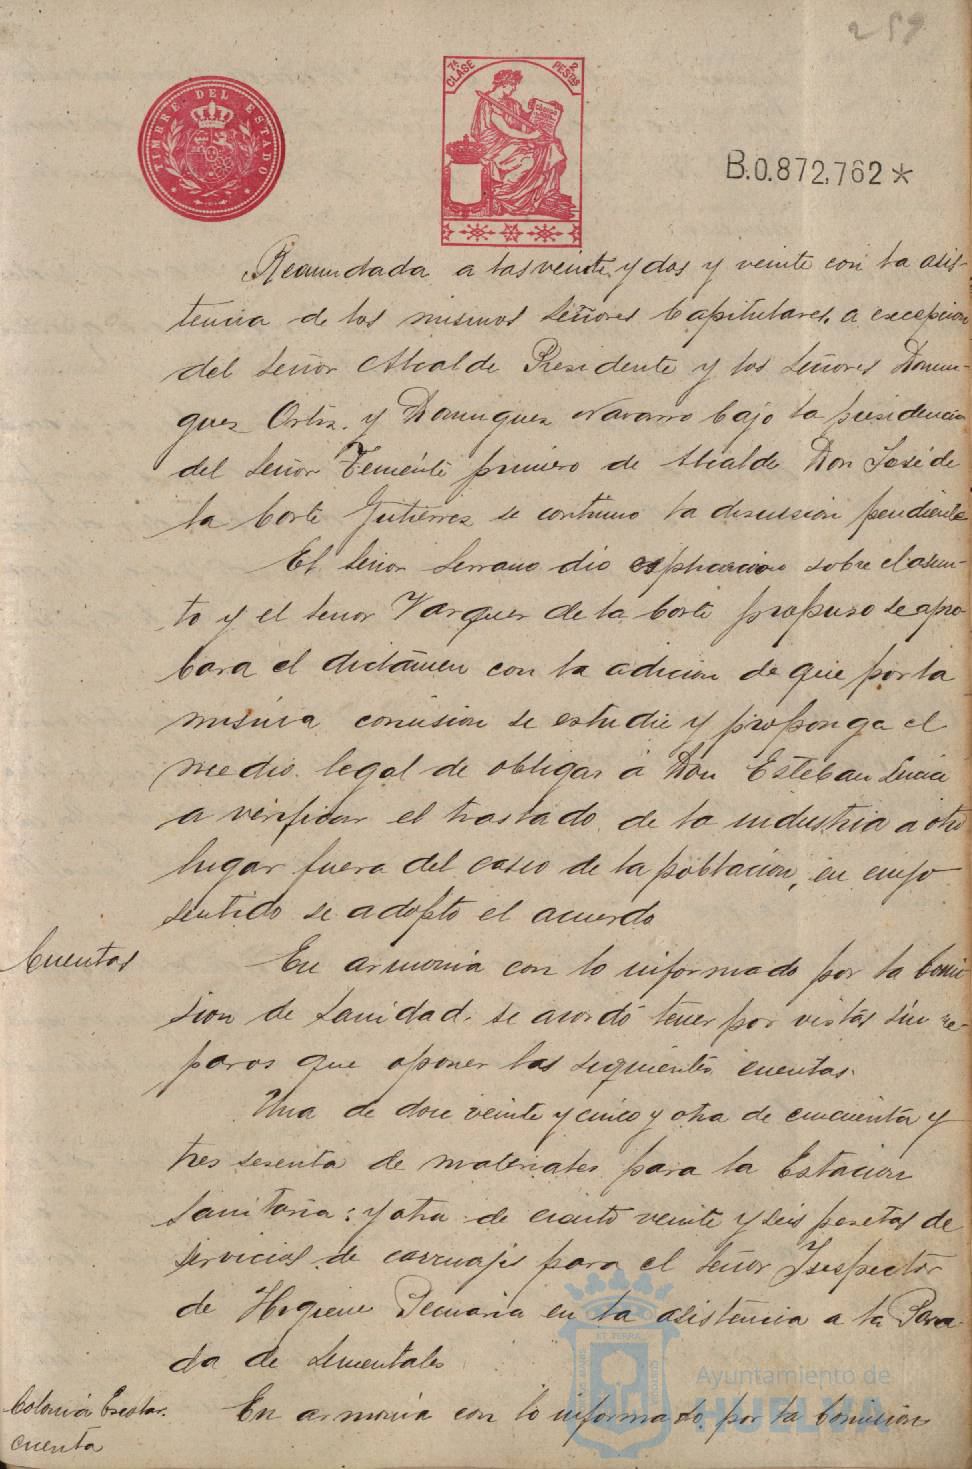 259
TIMBRE DEL ESTADO
7ª CLASE
2 PESTAS
B.0.872.762*
Reanudada a las veinte y dos y veinte con la asis-
tencia de los mismos Señores Capitulares, a excepcion
del Señor Alcalde Presidente y los Señores Domin-
guez Ortiz y Dominguez Navarro bajo la presidencia
del Señor Teniente primero de Alcalde Don José de
la Corte Gutierrez se continuo la discusion pendiente
El Señor Serrano dio esplicacion sobre el asun-
to y el Señor Vazquez de la Corte propuso se apro
bara el dictámen con la adicion de que por la
misma comision se estudie y proponga el
medio legal de obligar á Don Esteban
a verificar el traslado de la industria a otro
lugar fuera del casco de la poblacion, en cuyo
sentido se adopto el acuerdo
Cuentas
En armonia con lo informado por la Comi
sion de Sanidad, se acordó tener por vistas sin re-
paros que oponer las siguientes cuentas.
Una de doce veinte y cinco y otra de cincuenta y
tres sesenta de materiales para la Estacion
Sanitaria; y otra de ciento veinte y seis pesetas de
servicios de carruajes para el Señor Inspector
de Higiene Pecuaria en la asistencia a la Para-
da de Sementales
Colonia Escolar.
cuenta
En armonia con lo informado por la Comision
Ayuntamiento de
HUELVA